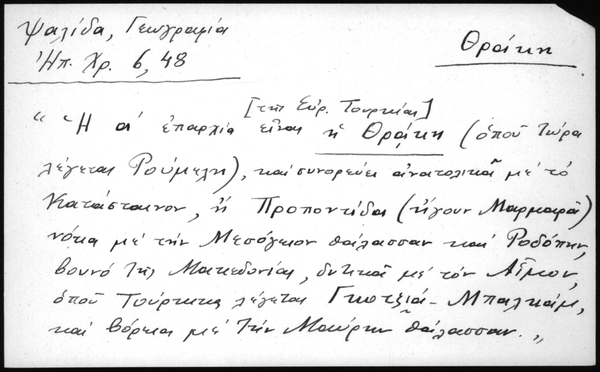 Ψαλίδα, Γεωγραφία
Ἠπ. Χρ. 6, 48
Θρᾴκη
[τῆς Εὐρ. Τουρκίας]
"Ἡ α' ἐπαρχία εἶναι ἡ Θρᾴκη (ὁποῦ τώρα
λέγεται Ρούμελη), καὶ συνορεύει ἀνατολικᾶ μὲ τὸ
Κατάστενον, ἢ Προποντίδα (ἤγουν Μαρμαρᾶ)
νότια μὲ τὴν Μεσόγειον θάλασσαν καὶ Ροδόπην,
βουνὸ τῆς Μακεδονίας, δυτικὰ μὲ τὸν Αἷμον,
ὁποῦ Τούρκικα λέγεται Γκοτζιά-Μπαλκάμ,
καὶ βόρεια μὲ τὴν Μαύρην θάλασσαν."